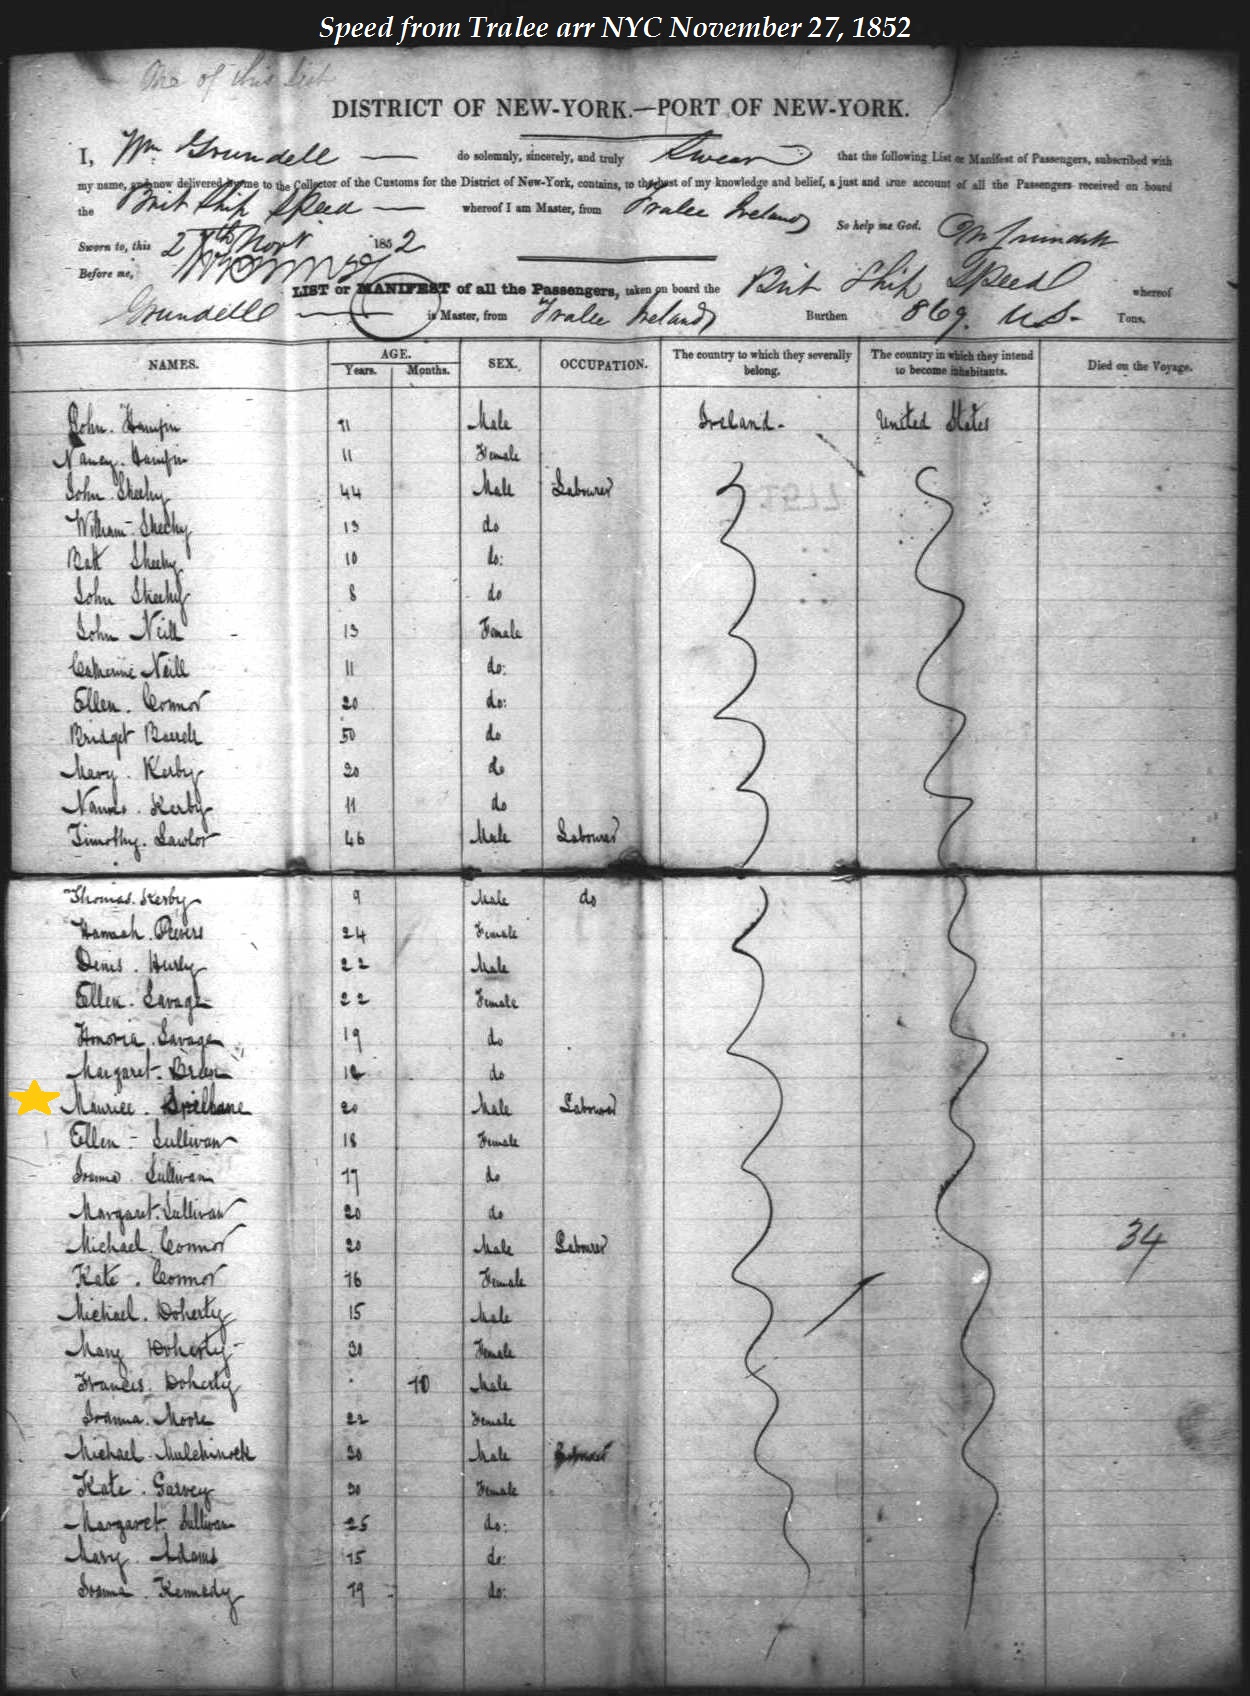 Speed from Tralee arr NYC November 27, 1852
One of this list
DISTRICT OF NEW-YORK.—PORT OF NEW-YORK.
I, Wm Grundell — do solemnly, sincerely, and truly Swear that the following List or Manifest of Passengers, subscribed with
my name, and now delivered by me to the Collector of the Customs for the District of New-York, contains, to the best of my knowledge and belief, a just and true account of all the Passengers received on board
the Brit Ship Speed — whereof I am Master, from Tralee Ireland
So help me God.
Sworn to, this 27th Novr 1852
Before me,
LIST or MANIFEST of all the Passengers, taken on board the Brit Ship Speed whereof
Grundell — is Master, from Tralee Ireland Burthen 869. U.S. Tons.
NAMES. AGE. Years. Months. SEX. OCCUPATION. The country to which they severally belong. The country in which they intend to become inhabitants. Died on the Voyage.
John. Male Ireland. United States
Nancy. 11 Female
John Sheehy 44 Male Labourer
William Sheehy 13 do
Batt Sheehy 10 do:
John Sheehy 8 do
John Neill 13 Female
Catherine Neill 11 do:
Ellen. Connor 20 do:
Bridget 50 do
Mary. Kerby 20 do
Kerby 11 do
Timothy. Lawlor 46 Male Labourer
Thomas. Kerby 9 Male do
Hannah. 24 Female
Denis. Hurly 22 Male
Ellen. Savage 22 Female
Honoria. Savage 19 do
Margaret. Breen do
Maurice. Spillane 20 Male Labourer
Ellen - Sullivan 18 Female
Joanna. Sullivan 17 do
Margaret. Sullivan 20 do
Michael. Connor 20 Male Labourer 34
Kate. Connor 16 Female
Michael. Doherty 15 Male
Mary Doherty 30 Female
Francis. Doherty 10 Male
Joanna. Moore 22 Female
Michael. Mulchinock 30 Male Labourer
Kate. Garvey 30 Female
Margaret. Sullivan 25 do:
Mary. Adams 15 do:
Joanna. Kennedy 19 do: